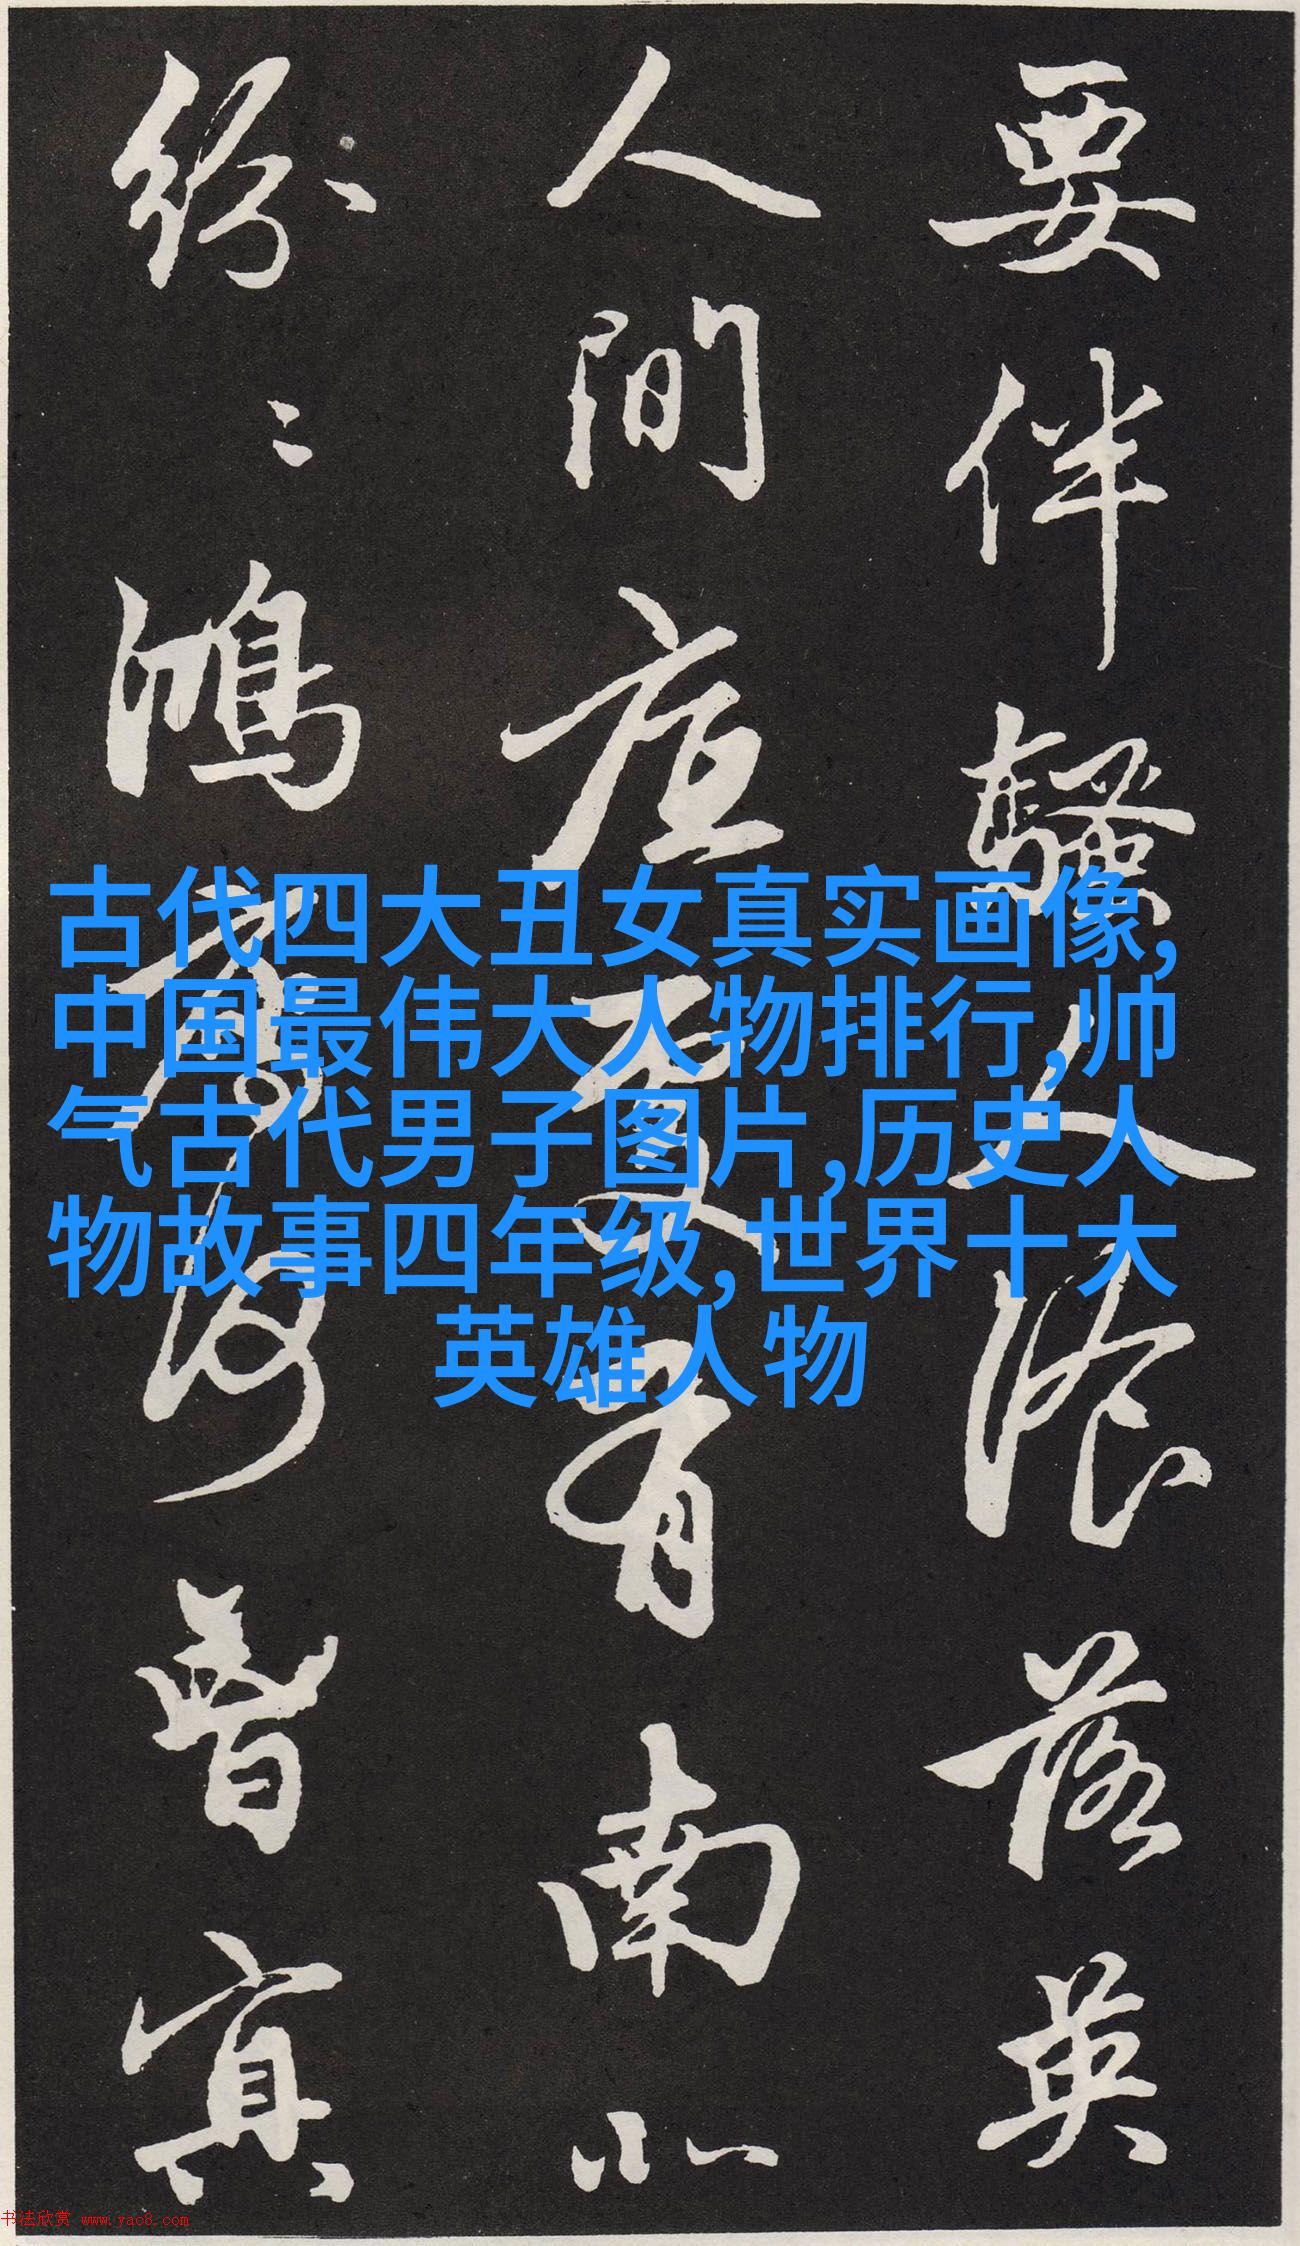 要伴騷人湌落英
人間底有南北
紛〻鴻雁何曾冥
古代四大丑女真实画像,
中国最伟大人物排行,帅
气古代男子图片,历史人
物故事四年级,世界十大
英雄人物
书法欣赏 www.yac8.com